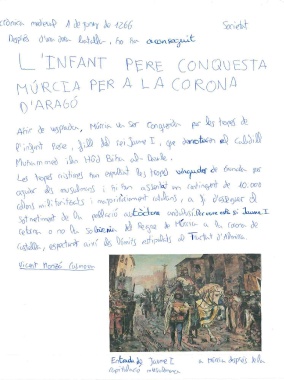 crònica medieval 1 de juny de 1266 Societat
Després d'una dura batalla, ho han aconseguit
L'INFANT PERE CONQUESTA
MÚRCIA PER A LA CORONA
D'ARAGÓ
Ahir de vesprada, Múrcia va ser conquerida per les tropes de
l'infant Pere, fill del rei Jaume I, que derrotaren el Cabdill
Muhammad ibn Hûd Biha al-Dawla.
Les tropes cristianes han expulsat les tropes vingudes de Granada per
ajudar els musulmans i s'han assentat un contingent de 10.000
colons militaritzats i majoritàriament catalans, a fi d'assegurar el
sotmetiment de la població autòctona andalusí. Per veure està si Jaume I
cedirà o no la sobirania del Regne de Múrcia a la corona de
Castella, respectant així els límits estipulats al Tractat d'Almirra.
Vicent
Entrada de Jaume I a Múrcia després de la
capitulació musulmana